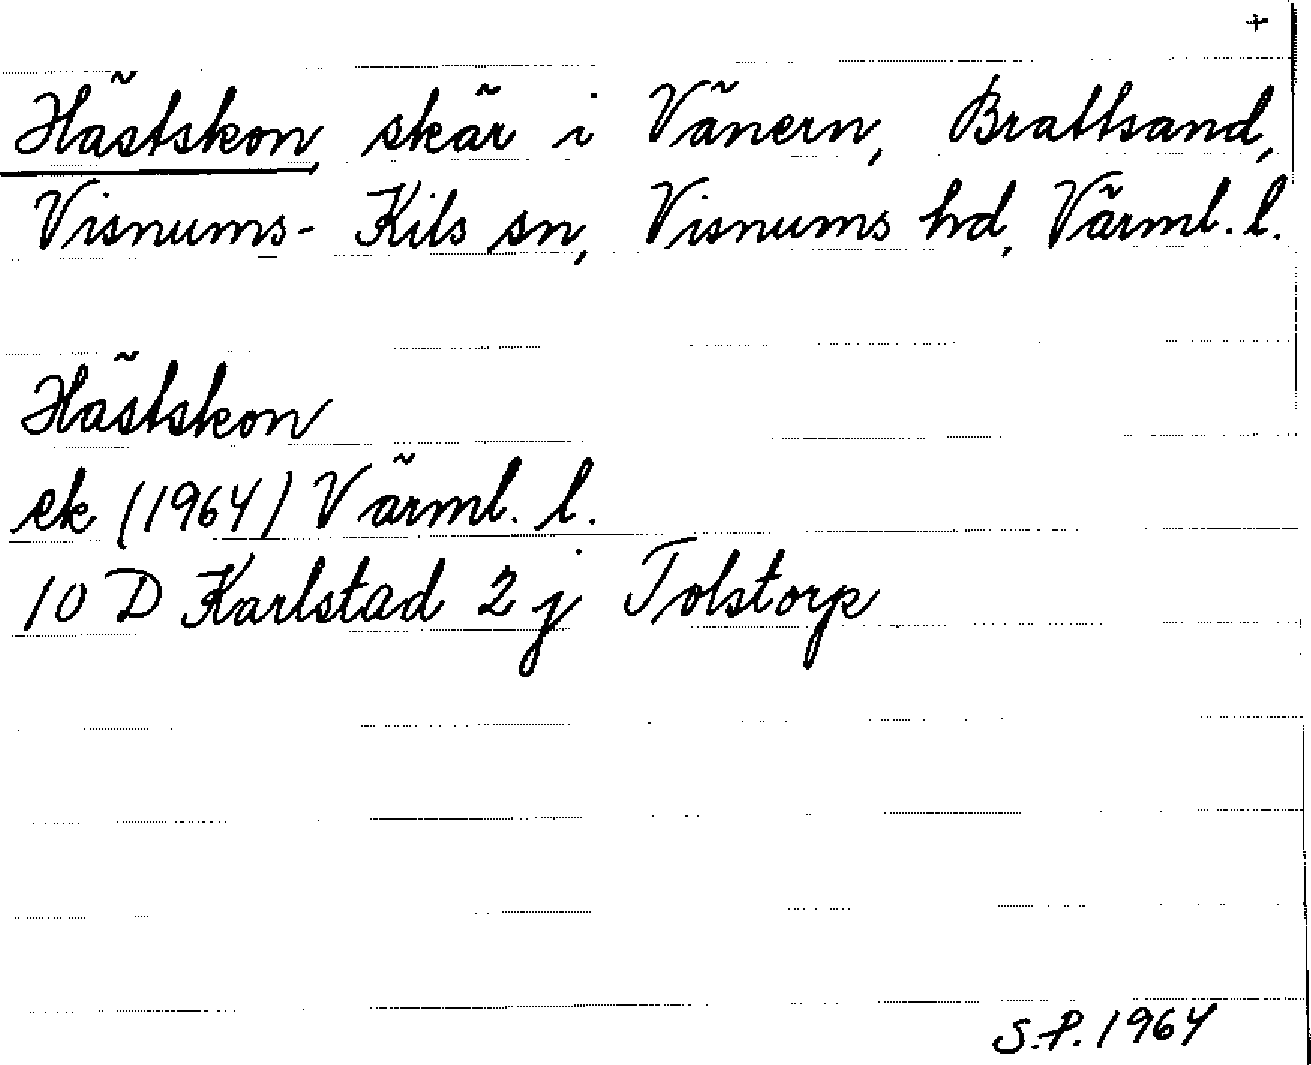 +
Hästskon, skär i Vänern, Brattsand,
Visnums-Kils sn, Visnums hd, Värml. l.
Hästskon
ek (1964) Värml. l.
10 D Karlstad 2 j Tolstorp
S.P. 1964